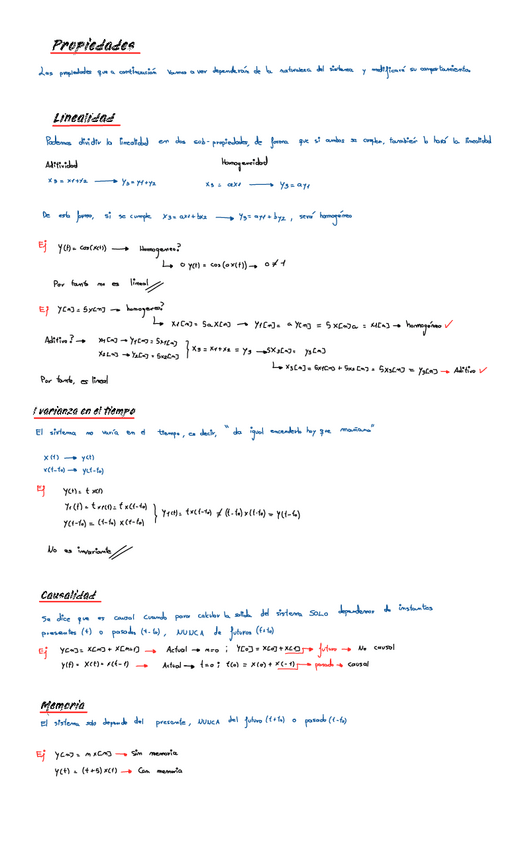 Propiedades
Las propiedades que a continuación vamos a ver dependerán de la naturaleza del sistema y modificará su comportamiento
Linealidad
Podemos dividir la linealidad en dos sub-propiedades, de forma que si ambas se cumplen, también lo hará la linealidad
Aditividad Homogeneidad
x3 = x1+x2 → y3 = y1+y2 x3 = ax1 → y3 = ay1
De esta forma, si se cumple x3 = ax1+bx2 → y3 = ay1+by2, será homogéneo
Ej y(t) = cos(x(t)) → Homogeneo?
↳ 0 y(t) = cos(0x(t)) → 0 ≠ 1
Por tanto no es lineal
Ej y[n] = 5x[n] → homogeneo?
↳ x1[n] = 5ax[n] → y1[n] = a y[n] = 5x[n]a = x1[n] → homogéneo ✓
Aditivo? → x1[n] → y1[n] = 5x1[n]
x2[n] → y2[n] = 5x2[n] } x3 = x1+x2 = y3 → 5x3[n] = y3[n]
↳ x3[n] = 5x1[n] + 5x2[n] = 5x3[n] = y3[n] → Aditivo ✓
Por tanto, es lineal
Ivarianza en el tiempo
El sistema no varía en el tiempo, es decir, "da igual encenderlo hoy que mañana"
x(t) → y(t)
x(t-t0) → y(t-t0)
Ej y(t) = t x(t)
y1(t) = t x1(t) = t x(t-t0)
y(t-t0) = (t-t0) x(t-t0) } y1(t) = t x(t-t0) ≠ (t-t0) x(t-t0) = y(t-t0)
No es invariante
Causalidad
Se dice que es causal cuando para calcular la salida del sistema SOLO dependemos de instantes
presentes (t) o pasados (t-t0), NUNCA de futuros (t+t0)
Ej y[n] = x[n] + x[n+1] → Actual → n=0 ; y[0] = x[0] + x[1] → futuro → No causal
y(t) = x(t) + x(t-1) → Actual → t=0 ; t(0) = x(0) + x(-1) → pasado → causal
Memoria
El sistema solo depende del presente, NUNCA del futuro (t+t0) o pasado (t-t0)
Ej y[n] = n x[n] → Sin memoria
y(t) = (t+5) x(t) → Con memoria